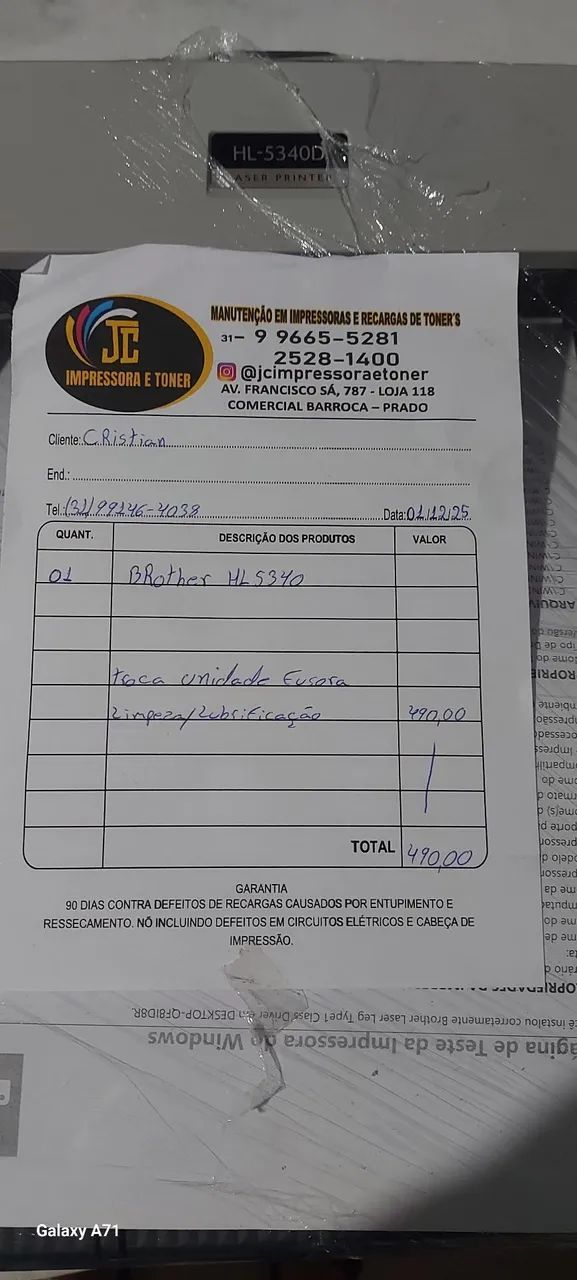 HL-5340D
LASER PRINTER
JC
IMPRESSORA E TONER
MANUTENÇÃO EM IMPRESSORAS E RECARGAS DE TONER'S
31– 9 9665-5281
2528-1400
@jcimpressoraetoner
AV. FRANCISCO SÁ, 787 - LOJA 118
COMERCIAL BARROCA – PRADO
Cliente: CRistian
End.:
Tel.: (31) 99146-4038 Data: 01/12/25
QUANT. DESCRIÇÃO DOS PRODUTOS VALOR
01 BRother HL5340
troca unidade Fusora
Limpeza/Lubrificação 490,00
TOTAL 490,00
GARANTIA
90 DIAS CONTRA DEFEITOS DE RECARGAS CAUSADOS POR ENTUPIMENTO E
RESSECAMENTO. NÓ INCLUINDO DEFEITOS EM CIRCUITOS ELÉTRICOS E CABEÇA DE
IMPRESSÃO.
instalou corretamente Brother Laser Leg Type1 Class Driver em DESKTOP-QF8ID8R.
Página de Teste da Impressora do Windows
Galaxy A71